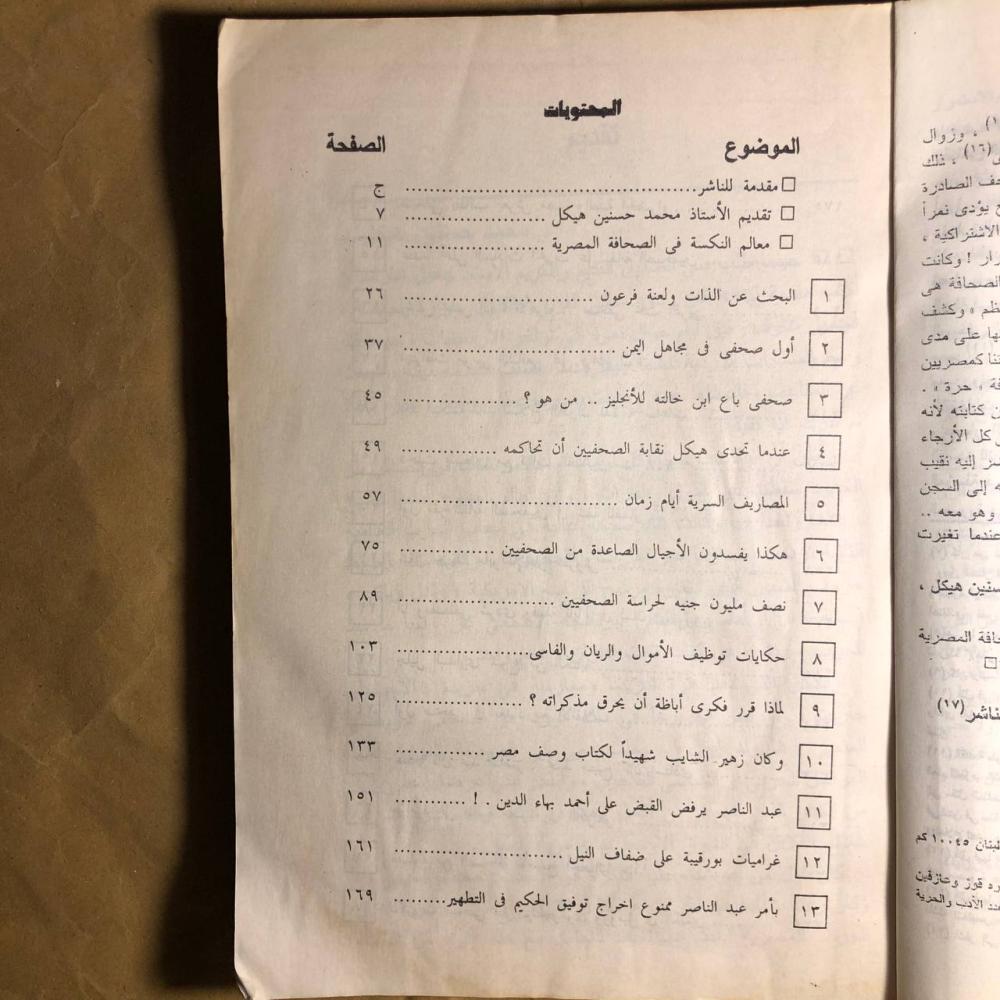 المحتويات
الموضوع الصفحة
□ مقدمة للناشر........................................ ج
□ تقديم الأستاذ محمد حسنين هيكل .................... ٧
□ معالم النكسة فى الصحافة المصرية .................... ١١
١ البحث عن الذات ولعنة فرعون ........................... ٢٦
٢ أول صحفى فى مجاهل اليمن .............................. ٣٧
٣ صحفى باع ابن خالته للأنجليز .. من هو ؟ ................ ٤٥
٤ عندما تحدى هيكل نقابة الصحفيين أن تحاكمه .............. ٤٩
٥ المصاريف السرية أيام زمان ............................... ٥٧
٦ هكذا يفسدون الأجيال الصاعدة من الصحفيين .............. ٧٥
٧ نصف مليون جنيه لحراسة الصحفيين ...................... ٨٩
٨ حكايات توظيف الأموال والريان والفاسى................... ١٠٣
٩ لماذا قرر فكرى أباظة أن يحرق مذكراته ؟ .................. ١٢٥
١٠ وكان زهير الشايب شهيداً لكتاب وصف مصر ............. ١٣٣
١١ عبد الناصر يرفض القبض على أحمد بهاء الدين . ! .......... ١٥١
١٢ غراميات بورقيبة على ضفاف النيل ........................ ١٦١
١٣ بأمر عبد الناصر ممنوع اخراج توفيق الحكيم فى التطهير......... ١٦٩
، وزوال
(١٦) ، ذلك
الصادرة
يؤدى
الاشتراكية ،
! وكانت
الصحافة هى
وكشف
على مدى
كمصريين
« حرة » .
كتابته لأنه
كل الأرجاء
إليه نقيب
إلى السجن
وهو معه ..
عندما تغيرت
هيكل ،
المصرية
□
(١٧)
١٠,٤٥ كم
الأدب والحرية